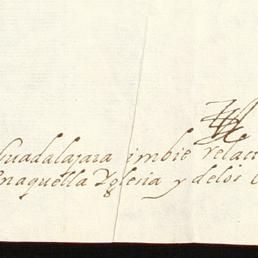 Guadalajara imbie relaci
enaquella Yglesia y delos